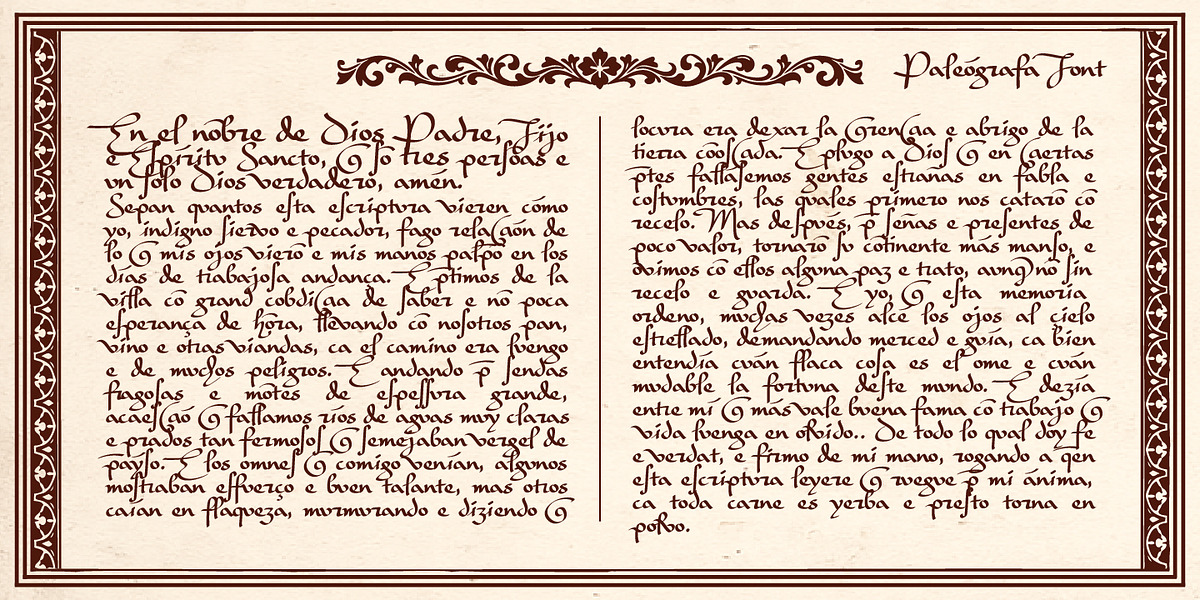 Paleógrafa Font
En el nōbre de Dios Padre, Fijo
e Espíritu Sancto, q̃ ſo tres perſōas e
vn ſolo Dios verdadero, amén.
Sepan quantos eſta eſcriptura vieren cómo
yo, indigno ſieruo e pecador, fago relaçión de
lo q̃ mis ojos vierō e mis manos palpō en los
días de trabajoſa andança. E p̄timos de la
villa cō grand cobdiçia de ſaber e nō poca
eſperança de hōra, lleuando cō noſotros pan,
vino e otras viandas, ca el camino era luengo
e de muchos peligros. E andando p̄ ſendas
fragoſas e mōtes de eſpeſſura grande,
acaesçió q̃ fallamos ríos de aguas muy claras
e prados tan fermoſos q̃ ſemejaban vergel de
p̄ayſo. E los omnes q̃ comigo venían, algunos
moſtraban eſfuerço e buen talante, mas otros
caían en flaqueza, murmurando e diziendo q̃
locura era dexar la q̃rençia e abrigo de la
tierra cōosçada. E plugo a Dios q̃ en çiertas
p̄tes fallaſemos gentes eſtrañas en fabla e
coſtumbres, las quales primero nos catarō cō
recelo. Mas deſpués, p̄ ſeñas e preſentes de
poco valor, tornarō ſu cōtinente más manſo, e
ouimos cō ellos alguna paz e trato, aunq̃ nō ſin
recelo e guarda. E yo, q̃ eſta memoria
ordeno, muchas vezes alcé los ojos al cielo
eſtrellado, demandando merced e guía, ca bien
entendía cuán flaca coſa es el ome e cuán
mudable la fortuna deſte mundo. E dezía
entre mí q̃ más vale buena fama cō trabajo q̃
vida luenga en oluido.. De todo lo qual doy fe
e verdat, e firmo de mi mano, rogando a qēn
eſta eſcriptura leyere q̃ ruegue p̄ mi ánima,
ca toda carne es yerba e preſto torna en
poluo.